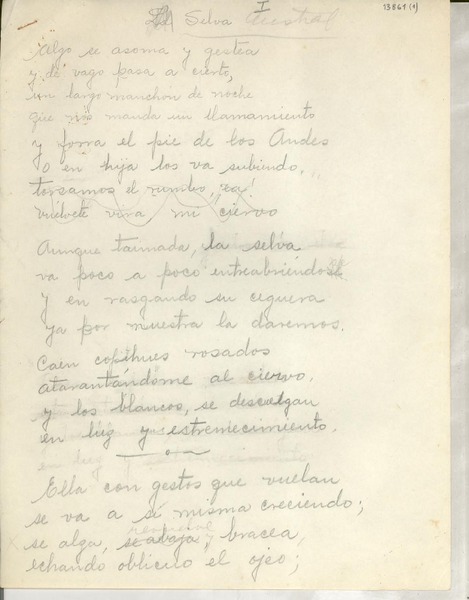 I
13861 (1)
La Selva Austral
Algo se asoma y gestea
y de vago pasa a cierto,
un largo manchón de noche
que nos manda un llamamiento
y forra el pie de los Andes
o en hija los va subiendo.
torzamos el rumbo, ya!
vuélvete mi ciervo
Aunque taimada, la selva
va poco a poco entreabriéndose
y en rasgando su ceguera
ya por nuestra la daremos.
Caen copihues rosados
atarantándome al ciervo,
y los blancos, se descuelgan
en luz y estremecimiento.
Ella con gestos que vuelan
se va a sí misma creciendo;
se alza, se abaja, bracea,
echando oblicuo el ojeo;